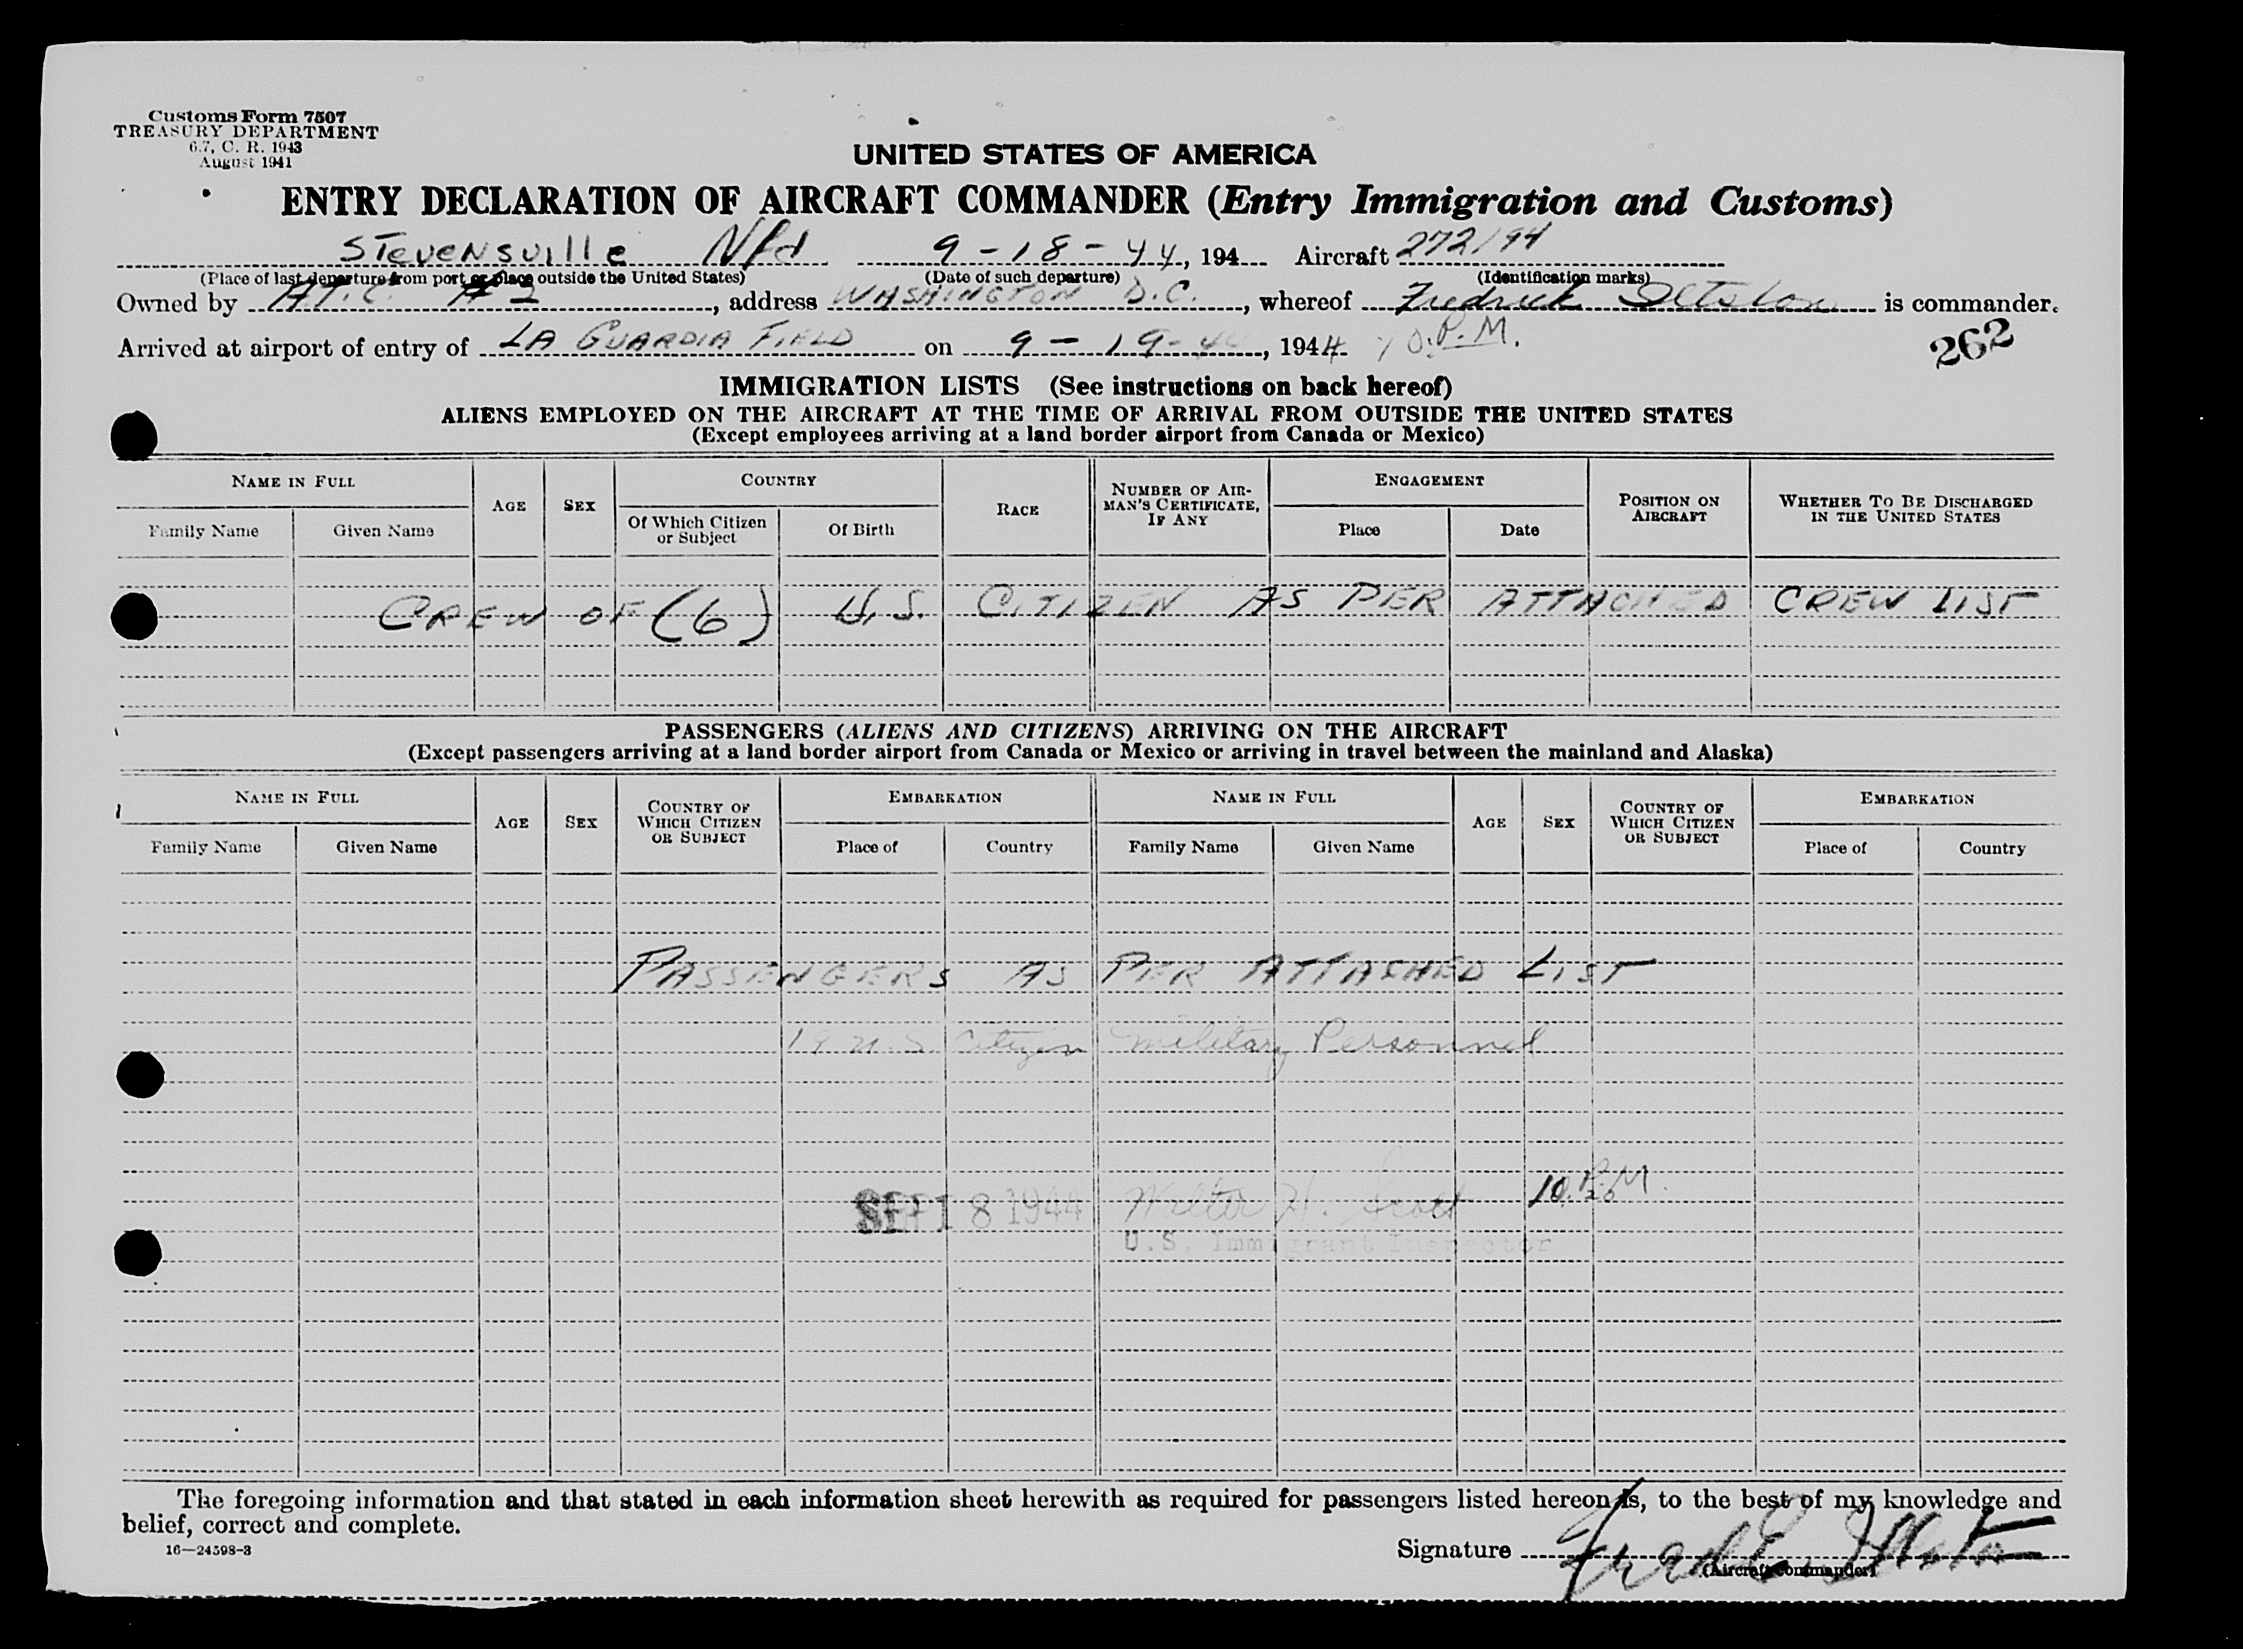 Customs Form 7507
TREASURY DEPARTMENT
6.7, C. R. 1943
August 1941
UNITED STATES OF AMERICA
ENTRY DECLARATION OF AIRCRAFT COMMANDER (Entry Immigration and Customs)
STEVENSVILLE Nfd 9-18-44, 194 Aircraft 272194
(Place of last departure from port or place outside the United States) (Date of such departure) (Identification marks)
Owned by A.T.C. #2, address WASHINGTON D.C., whereof Fredrick is commander.
Arrived at airport of entry of LA GUARDIA FIELD on 9-19-44, 1944 10 P.M.
262
IMMIGRATION LISTS (See instructions on back hereof)
ALIENS EMPLOYED ON THE AIRCRAFT AT THE TIME OF ARRIVAL FROM OUTSIDE THE UNITED STATES
(Except employees arriving at a land border airport from Canada or Mexico)
NAME IN FULL AGE SEX COUNTRY RACE NUMBER OF AIRMAN'S CERTIFICATE, IF ANY ENGAGEMENT POSITION ON AIRCRAFT WHETHER TO BE DISCHARGED IN THE UNITED STATES
Family Name Given Name Of Which Citizen or Subject Of Birth Place Date
CREW OF (6) U.S. CITIZEN AS PER ATTACHED CREW LIST
PASSENGERS (ALIENS AND CITIZENS) ARRIVING ON THE AIRCRAFT
(Except passengers arriving at a land border airport from Canada or Mexico or arriving in travel between the mainland and Alaska)
NAME IN FULL AGE SEX COUNTRY OF WHICH CITIZEN OR SUBJECT EMBARKATION NAME IN FULL AGE SEX COUNTRY OF WHICH CITIZEN OR SUBJECT EMBARKATION
Family Name Given Name Place of Country Family Name Given Name Place of Country
PASSENGERS AS PER ATTACHED LIST
19 U.S. Citizen Military Personnel
SEP 18 1944 Walter H. Scott 10 P.M.
U.S. Immigrant Inspector
The foregoing information and that stated in each information sheet herewith as required for passengers listed hereon is, to the best of my knowledge and
belief, correct and complete.
16—24598-3
Signature
(Aircraft commander)